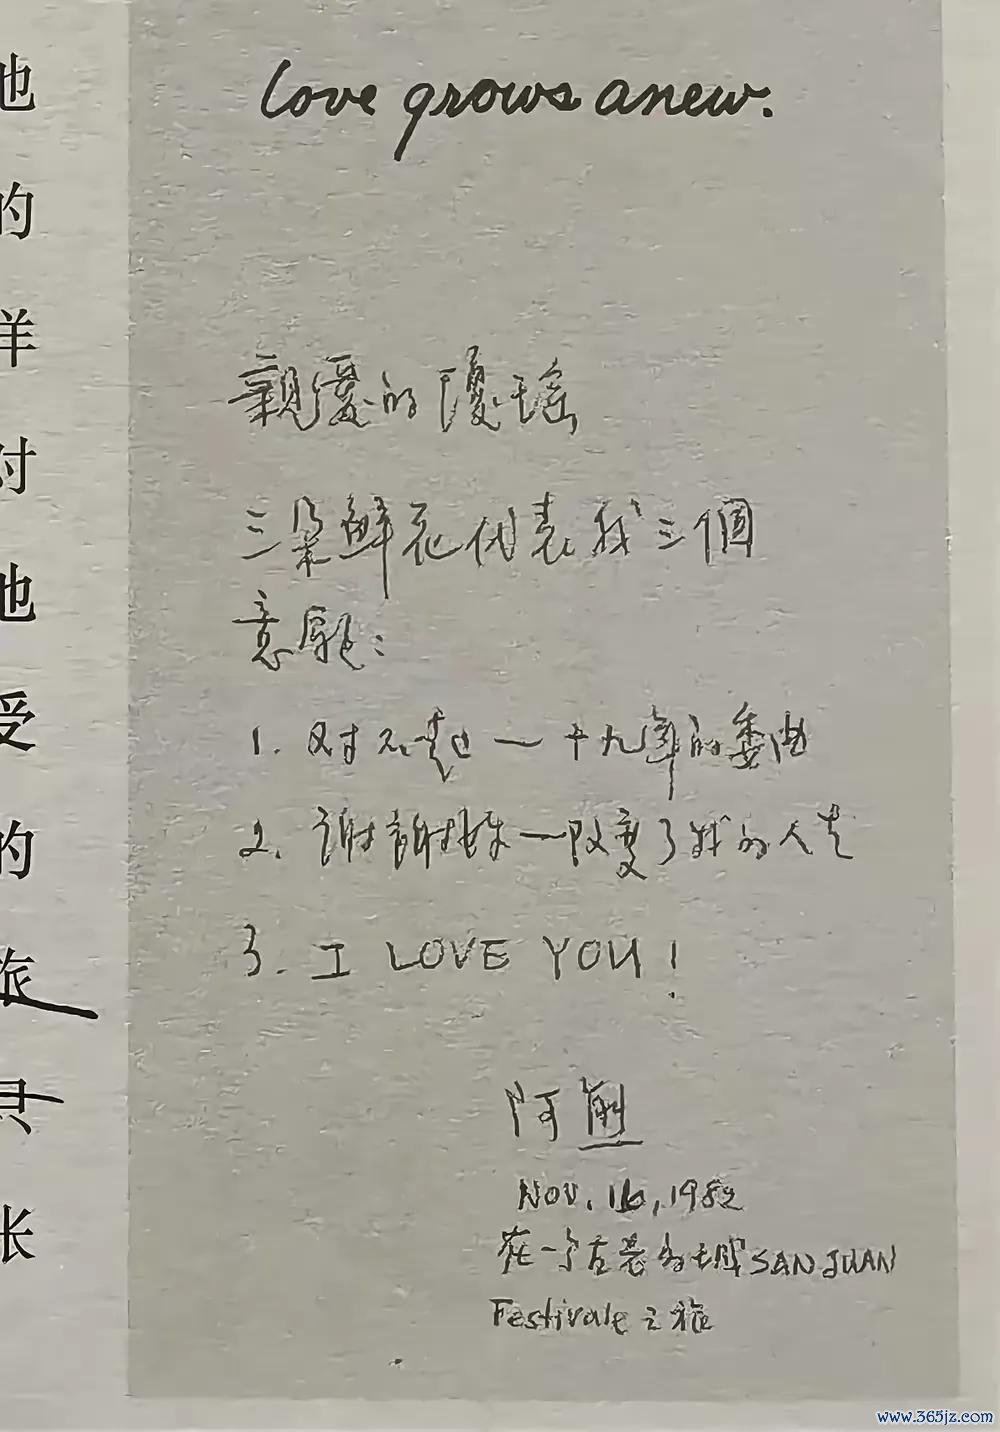 的
样
对
受
的
旅
张
love grows anew.
親愛的瓊瑤
三朵鮮花代表我三個
意願：
1. 对不起—十九年的委曲
2. 謝謝妳—改變了我的人生
3. I LOVE YOU!
阿
NOV. 16, 1982
在一个古老的城 SAN JUAN
Festivale 之旅
www.365jz.com